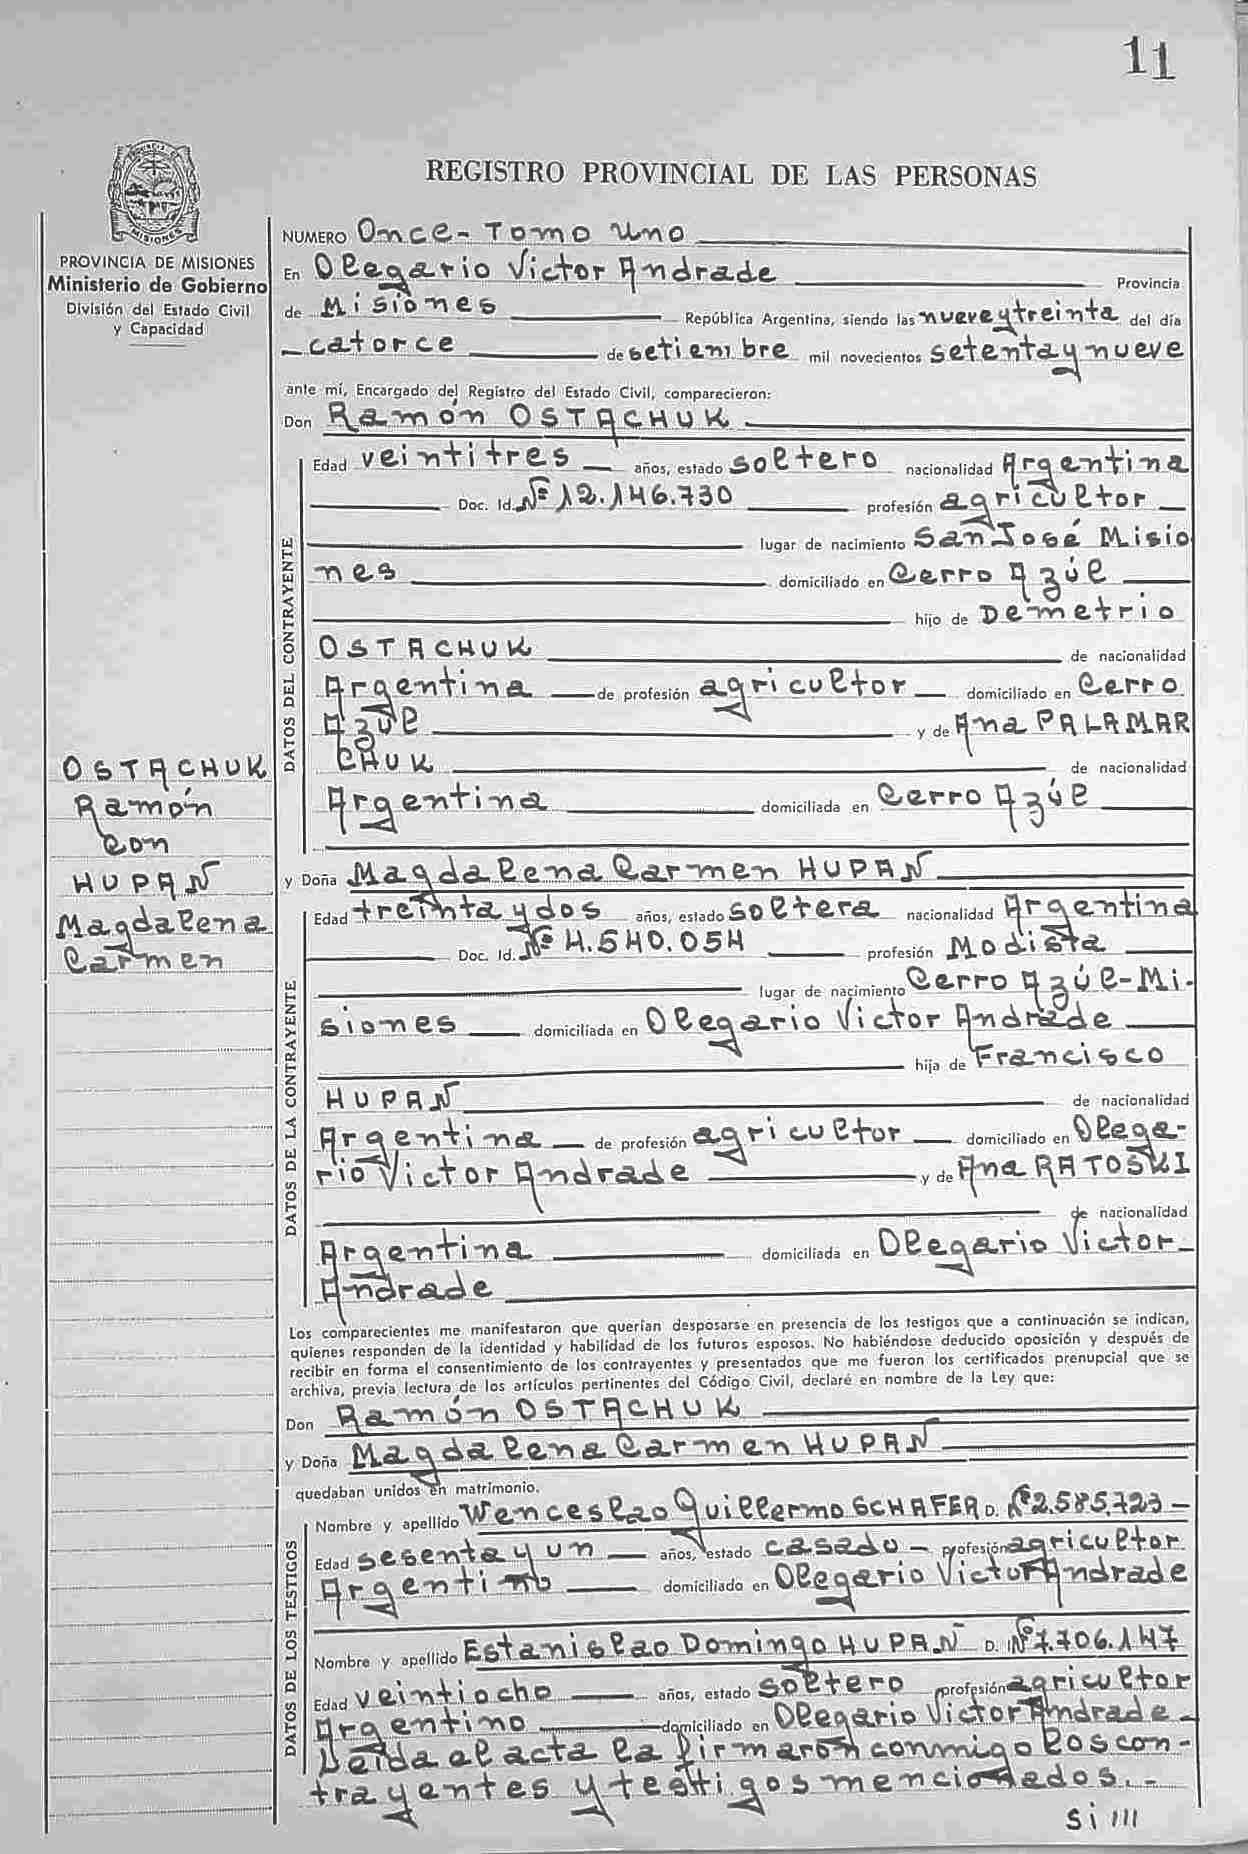 11
REGISTRO PROVINCIAL DE LAS PERSONAS
MISIONES
PROVINCIA DE MISIONES
Ministerio de Gobierno
División del Estado Civil
y Capacidad
OSTACHUK
Ramón
con
HUPAÑ
Magdalena
Carmen
NUMERO Once - Tomo Uno
En Olegario Victor Andrade Provincia
de Misiones República Argentina, siendo las nueve y treinta del día
catorce de setiembre mil novecientos setenta y nueve
ante mí, Encargado del Registro del Estado Civil, comparecieron:
Don Ramón OSTACHUK
DATOS DEL CONTRAYENTE
Edad veintitres años, estado soltero nacionalidad Argentina
Doc. Id. Nº 12.146.730 profesión agricultor
lugar de nacimiento San José Misio
nes domiciliado en Cerro Azúl
hijo de Demetrio
OSTACHUK de nacionalidad
Argentina de profesión agricultor domiciliado en Cerro
Azúl y de Ana PALAMAR
CHUK de nacionalidad
Argentina domiciliada en Cerro Azúl
y Doña Magdalena Carmen HUPAÑ
DATOS DE LA CONTRAYENTE
Edad treinta y dos años, estado soltera nacionalidad Argentina
Doc. Id. Nº 4.540.054 profesión Modista
lugar de nacimiento Cerro Azúl-Mi-
siones domiciliada en Olegario Victor Andrade
hija de Francisco
HUPAÑ de nacionalidad
Argentina de profesión agricultor domiciliado en Olega-
rio Victor Andrade y de Ana RATOSKI
de nacionalidad
Argentina domiciliada en Olegario Victor
Andrade
Los comparecientes me manifestaron que querían desposarse en presencia de los testigos que a continuación se indican,
quienes responden de la identidad y habilidad de los futuros esposos. No habiéndose deducido oposición y después de
recibir en forma el consentimiento de los contrayentes y presentados que me fueron los certificados prenupcial que se
archiva, previa lectura de los artículos pertinentes del Código Civil, declaré en nombre de la Ley que:
Don Ramón OSTACHUK
y Doña Magdalena Carmen HUPAÑ
quedaban unidos en matrimonio.
DATOS DE LOS TESTIGOS
Nombre y apellido Wenceslao Guillermo SCHAFER D. Nº 2.585.723 -
Edad sesenta y un años, estado casado - profesión agricultor
Argentino domiciliado en Olegario Victor Andrade
Nombre y apellido Estanislao Domingo HUPAÑ D. Nº 7.706.147
Edad veintiocho años, estado soltero profesión agricultor
Argentino domiciliado en Olegario Victor Andrade -
Leída el acta la firmarón conmigo los con-
trayentes y testigos mencionados. -
Si ///